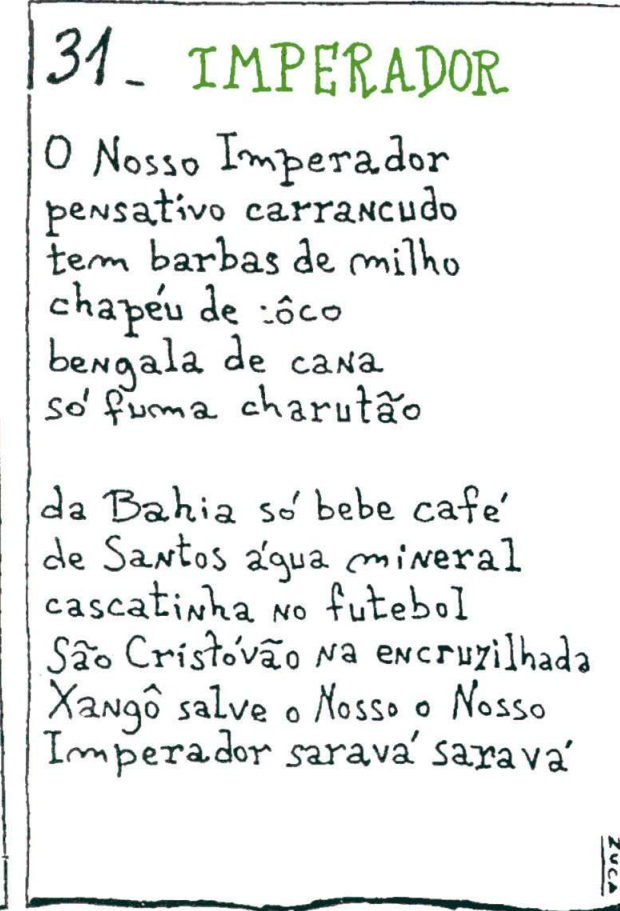 31- IMPERADOR
O Nosso Imperador
pensativo carrancudo
tem barbas de milho
chapéu de côco
bengala de cana
só fuma charutão
da Bahia só bebe café
de Santos água mineral
cascatinha no futebol
São Cristóvão na encruzilhada
Xangô salve o Nosso o Nosso
Imperador saravá saravá
ZUCA